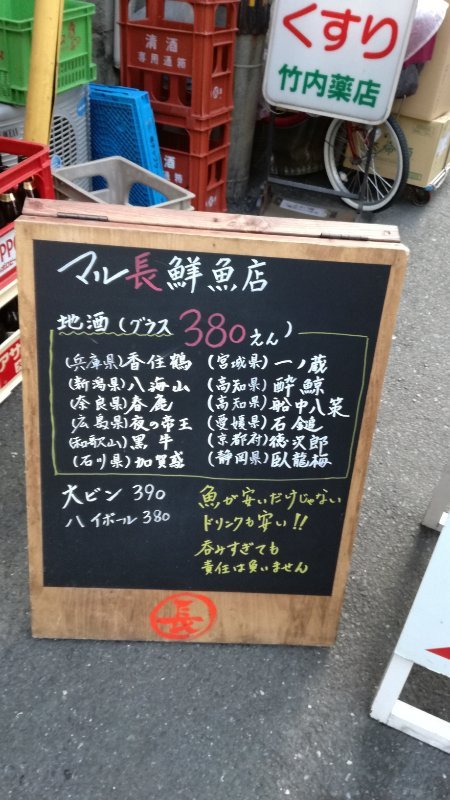 くすり
竹内薬店
清酒
専用通箱
清酒
専用通箱
マル長鮮魚店
地酒(グラス380えん)
(兵庫県)香住鶴
(新潟県)八海山
(奈良県)春鹿
(広島県)夜の帝王
(和歌山)黒牛
(石川県)加賀鳶
(宮城県)一ノ蔵
(高知県)酔鯨
(高知県)船中八策
(愛媛県)石鎚
(京都府)徳次郎
(静岡県)臥龍梅
大ビン 390
ハイボール 380
魚が安いだけじゃない
ドリンクも安い!!
呑みすぎても
責任は負いません
長